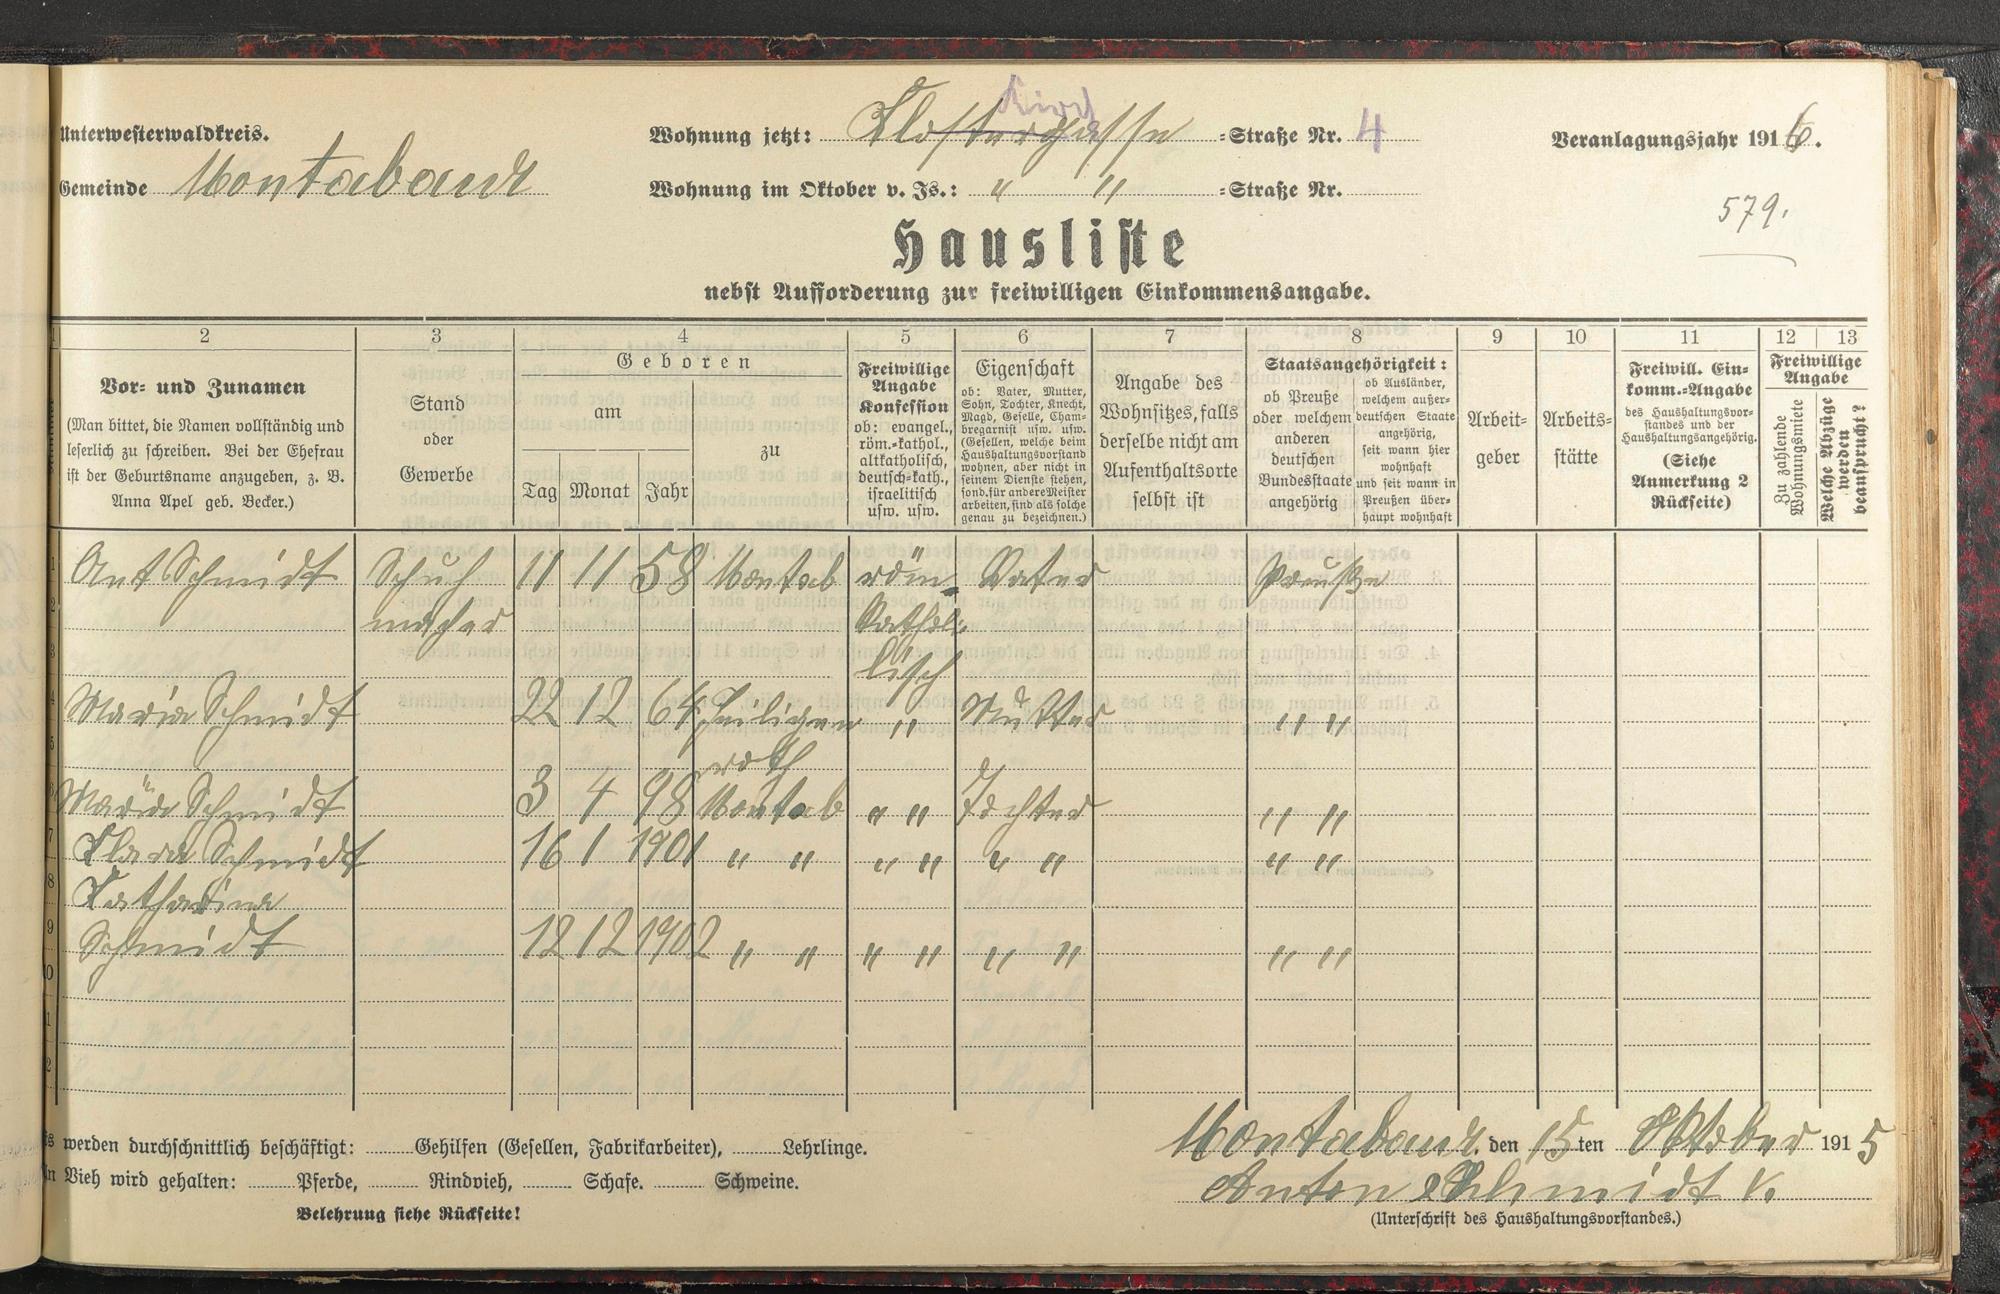 Unterwesterwaldkreis.
Gemeinde Montabaur
Wohnung jetzt: Klostergasse =Straße Nr. 4
Kirch
Wohnung im Oktober v. Js.: " " =Straße Nr.
Veranlagungsjahr 1916.
579.
Hausliste
nebst Aufforderung zur freiwilligen Einkommensangabe.
2 3 4 5 6 7 8 9 10 11 12 13
Vor- und Zunamen
(Man bittet, die Namen vollständig und
leserlich zu schreiben. Bei der Ehefrau
ist der Geburtsname anzugeben, z. B.
Anna Apel geb. Becker.)
Stand
oder
Gewerbe
Geboren
am
Tag Monat Jahr
zu
Freiwillige
Angabe
Konfession
ob: evangel.,
röm.=kathol.,
altkatholisch,
deutsch=kath.,
israelitisch
usw. usw.
Eigenschaft
ob: Vater, Mutter,
Sohn, Tochter, Knecht,
Magd, Geselle, Cham-
bregarnist usw. usw.
(Gesellen, welche beim
Haushaltungsvorstand
wohnen, aber nicht in
seinem Dienste stehen,
sond. für andere Meister
arbeiten, sind als solche
genau zu bezeichnen.)
Angabe des
Wohnsitzes, falls
derselbe nicht am
Aufenthaltsorte
selbst ist
Staatsangehörigkeit:
ob Preuße
oder welchem
anderen
deutschen
Bundesstaate
angehörig
ob Ausländer,
welchem außer=
deutschen Staate
angehörig,
seit wann hier
wohnhaft
und seit wann in
Preußen über=
haupt wohnhaft
Arbeit=
geber
Arbeits=
stätte
Freiwill. Ein=
komm.=Angabe
des Haushaltungsvor=
standes und der
Haushaltungsangehörig.
(Siehe
Anmerkung 2
Rückseite)
Freiwillige
Angabe
Zu zahlende
Wohnungsmiete
Welche Abzüge
werden
beansprucht?
1 Ant Schmidt Schuh 11 11 58 Montab röm. Vater Preuße
2 macher Katholi
3 lisch
4 Maria Schmidt 22 12 64 Heiligen " Mutter " "
5 roth
6 Maria Schmidt 3 4 98 Montab " " Tochter " "
7 Klara Schmidt 16 1 1901 " " " " " " " "
8 Katharina
9 Schmidt 12 12 1902 " " " " " " " "
10
1
2
werden durchschnittlich beschäftigt: Gehilfen (Gesellen, Fabrikarbeiter), Lehrlinge.
Vieh wird gehalten: Pferde, Rindvieh, Schafe. Schweine.
Belehrung siehe Rückseite!
Montabaur, den 15ten Oktober 1915
Anton Schmidt V.
(Unterschrift des Haushaltungsvorstandes.)